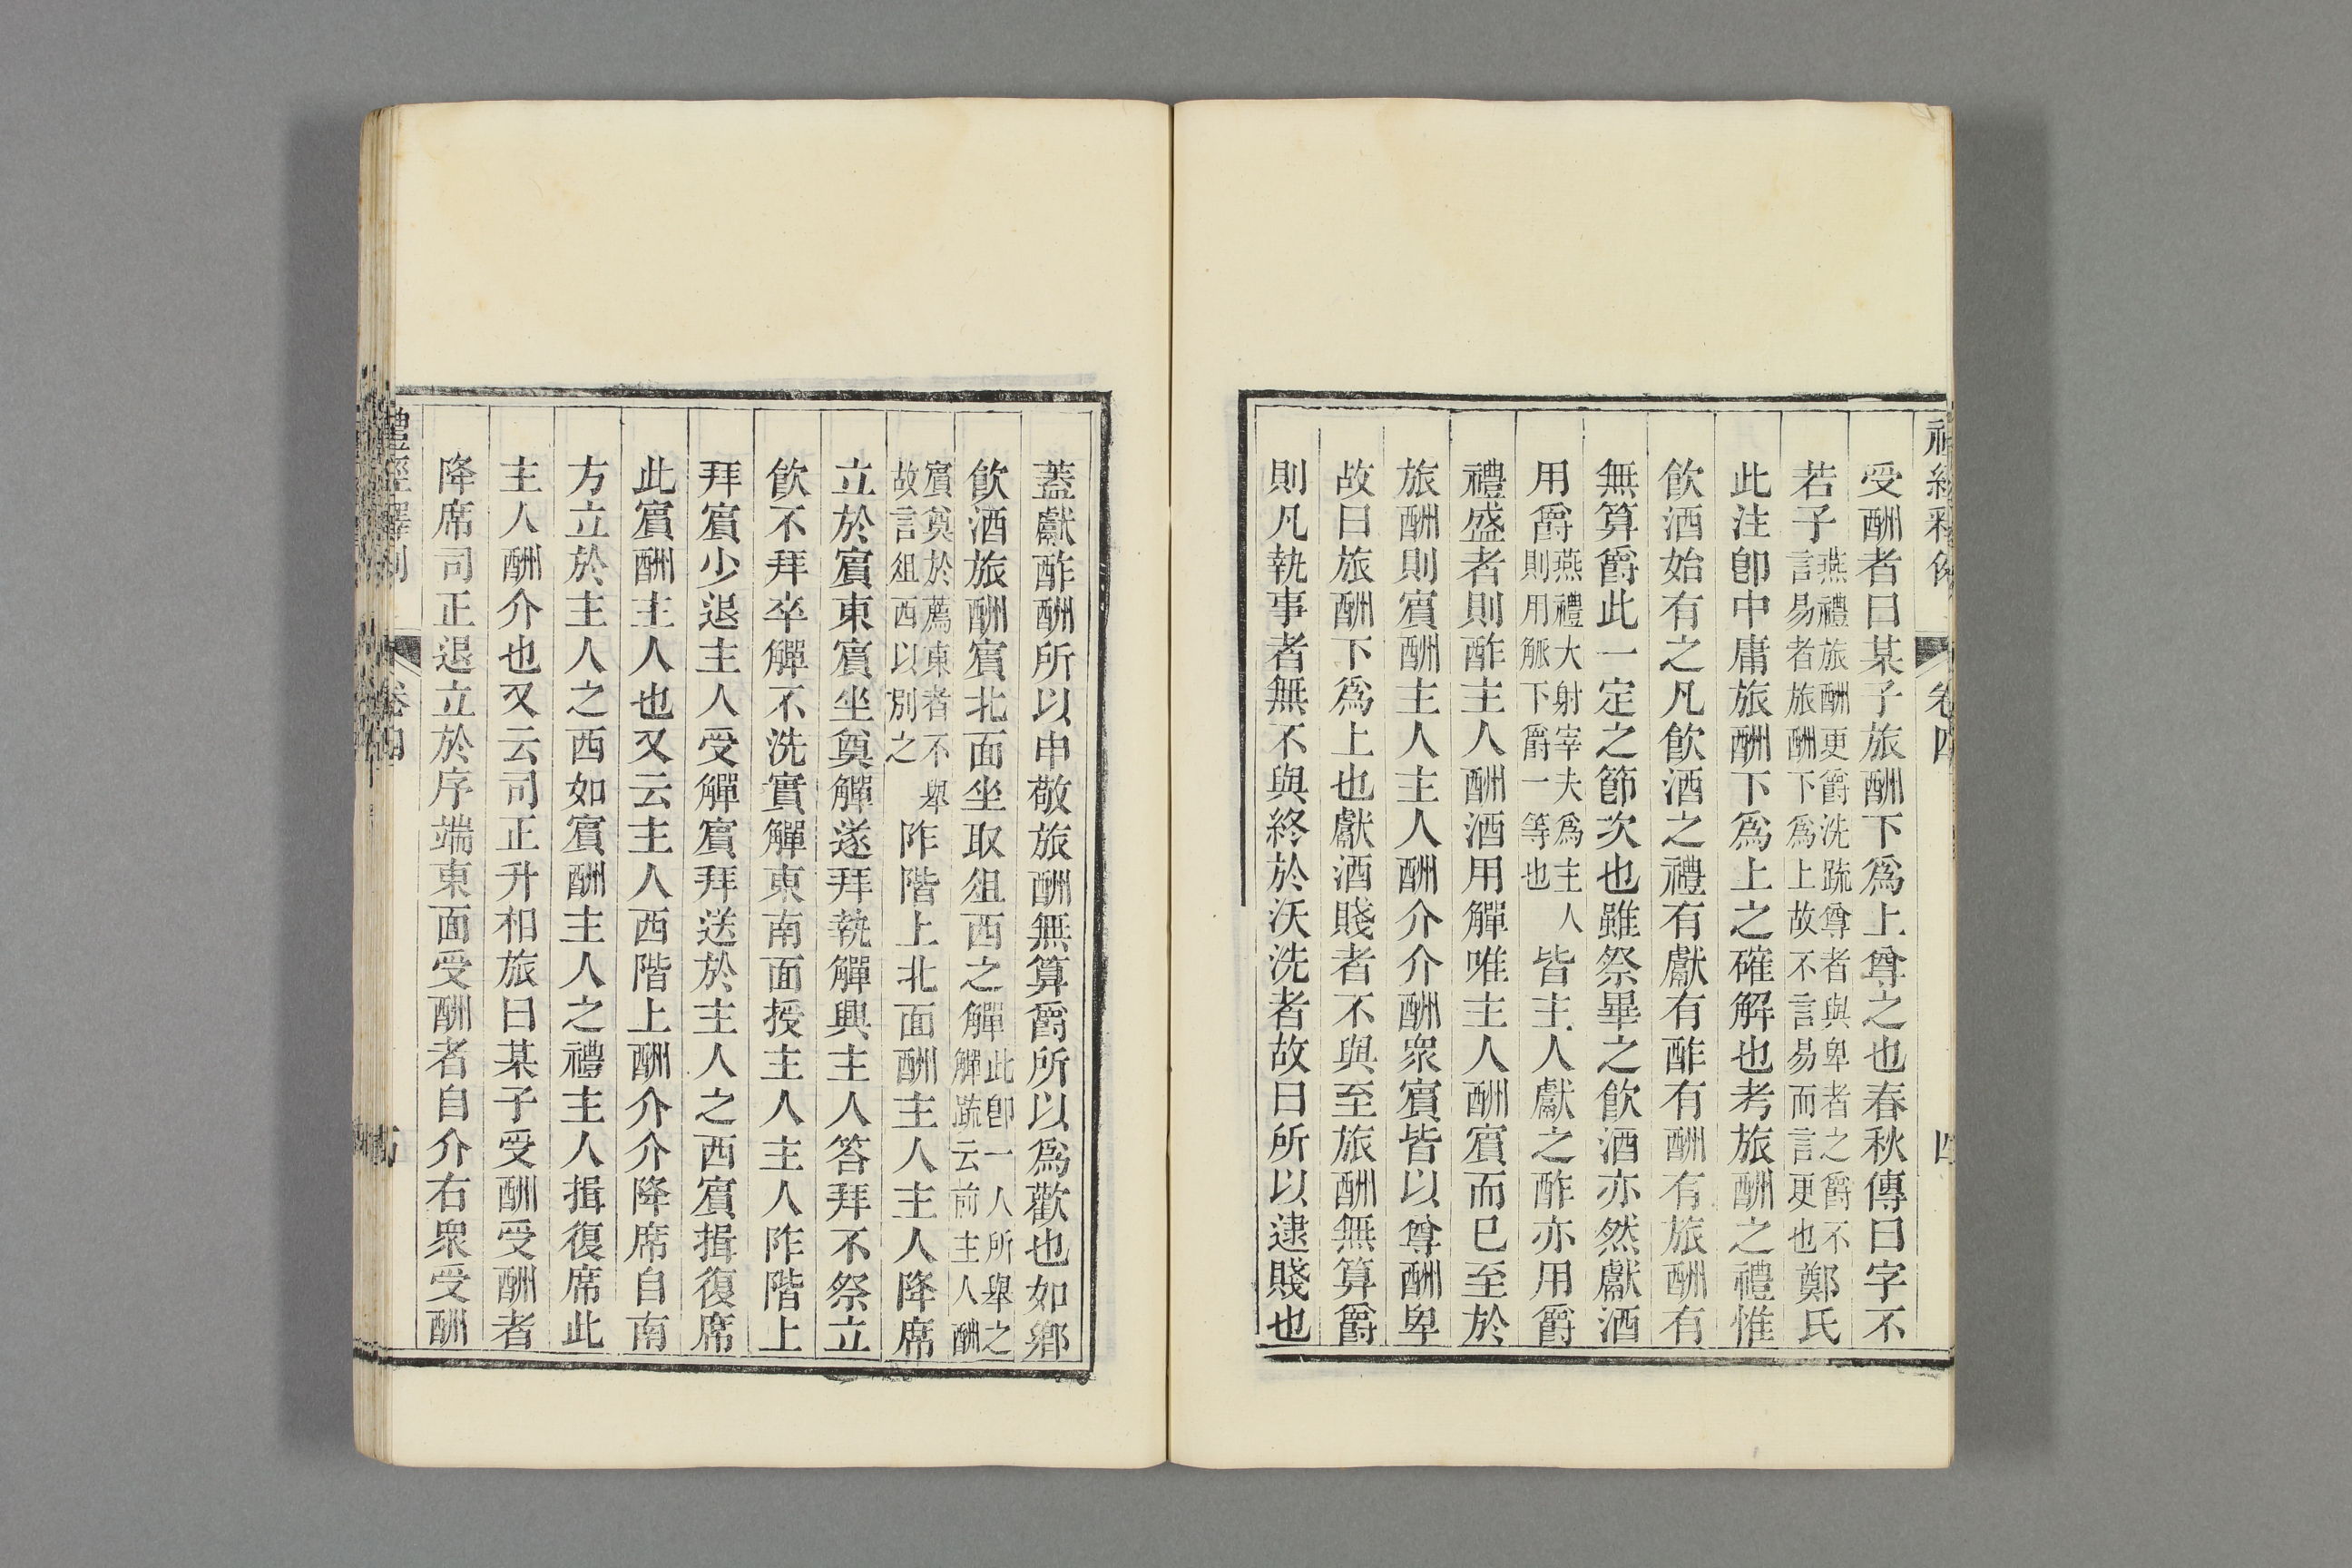 禮經釋例
卷四
四
受酬者曰某子旅酬下爲上尊之也春秋傳曰字不
若子燕禮旅酬更爵洗疏尊者與卑者之爵不
言易者旅酬下爲上故不言易而言更也鄭氏
此注卽中庸旅酬下爲上之確解也考旅酬之禮惟
飲酒始有之凡飲酒之禮有獻有酢有酬有旅酬有
無算爵此一定之節次也雖祭畢之飲酒亦然獻酒
用爵燕禮大射宰夫爲主人
則用觚下爵一等也皆主人獻之酢亦用爵
禮盛者則酢主人酬酒用觶唯主人酬賓而已至於
旅酬則賓酬主人主人酬介介酬眾賓皆以尊酬卑
故曰旅酬下爲上也獻酒賤者不與至旅酬無算爵
則凡執事者無不與終於沃洗者故曰所以逮賤也
蓋獻酢酬所以申敬旅酬無算爵所以爲歡也如鄉
飲酒旅酬賓北面坐取俎西之觶此卽一人所舉之
觶疏云前主人酬
賓奠於薦東者不舉
故言俎西以別之阼階上北面酬主人主人降席
立於賓東賓坐奠觶遂拜執觶興主人答拜不祭立
飲不拜卒觶不洗實觶東南面授主人主人阼階上
拜賓少退主人受觶賓拜送於主人之西賓揖復席
此賓酬主人也又云主人西階上酬介介降席自南
方立於主人之西如賓酬主人之禮主人揖復席此
主人酬介也又云司正升相旅曰某子受酬受酬者
降席司正退立於序端東面受酬者自介右眾受酬
禮經釋例
卷四